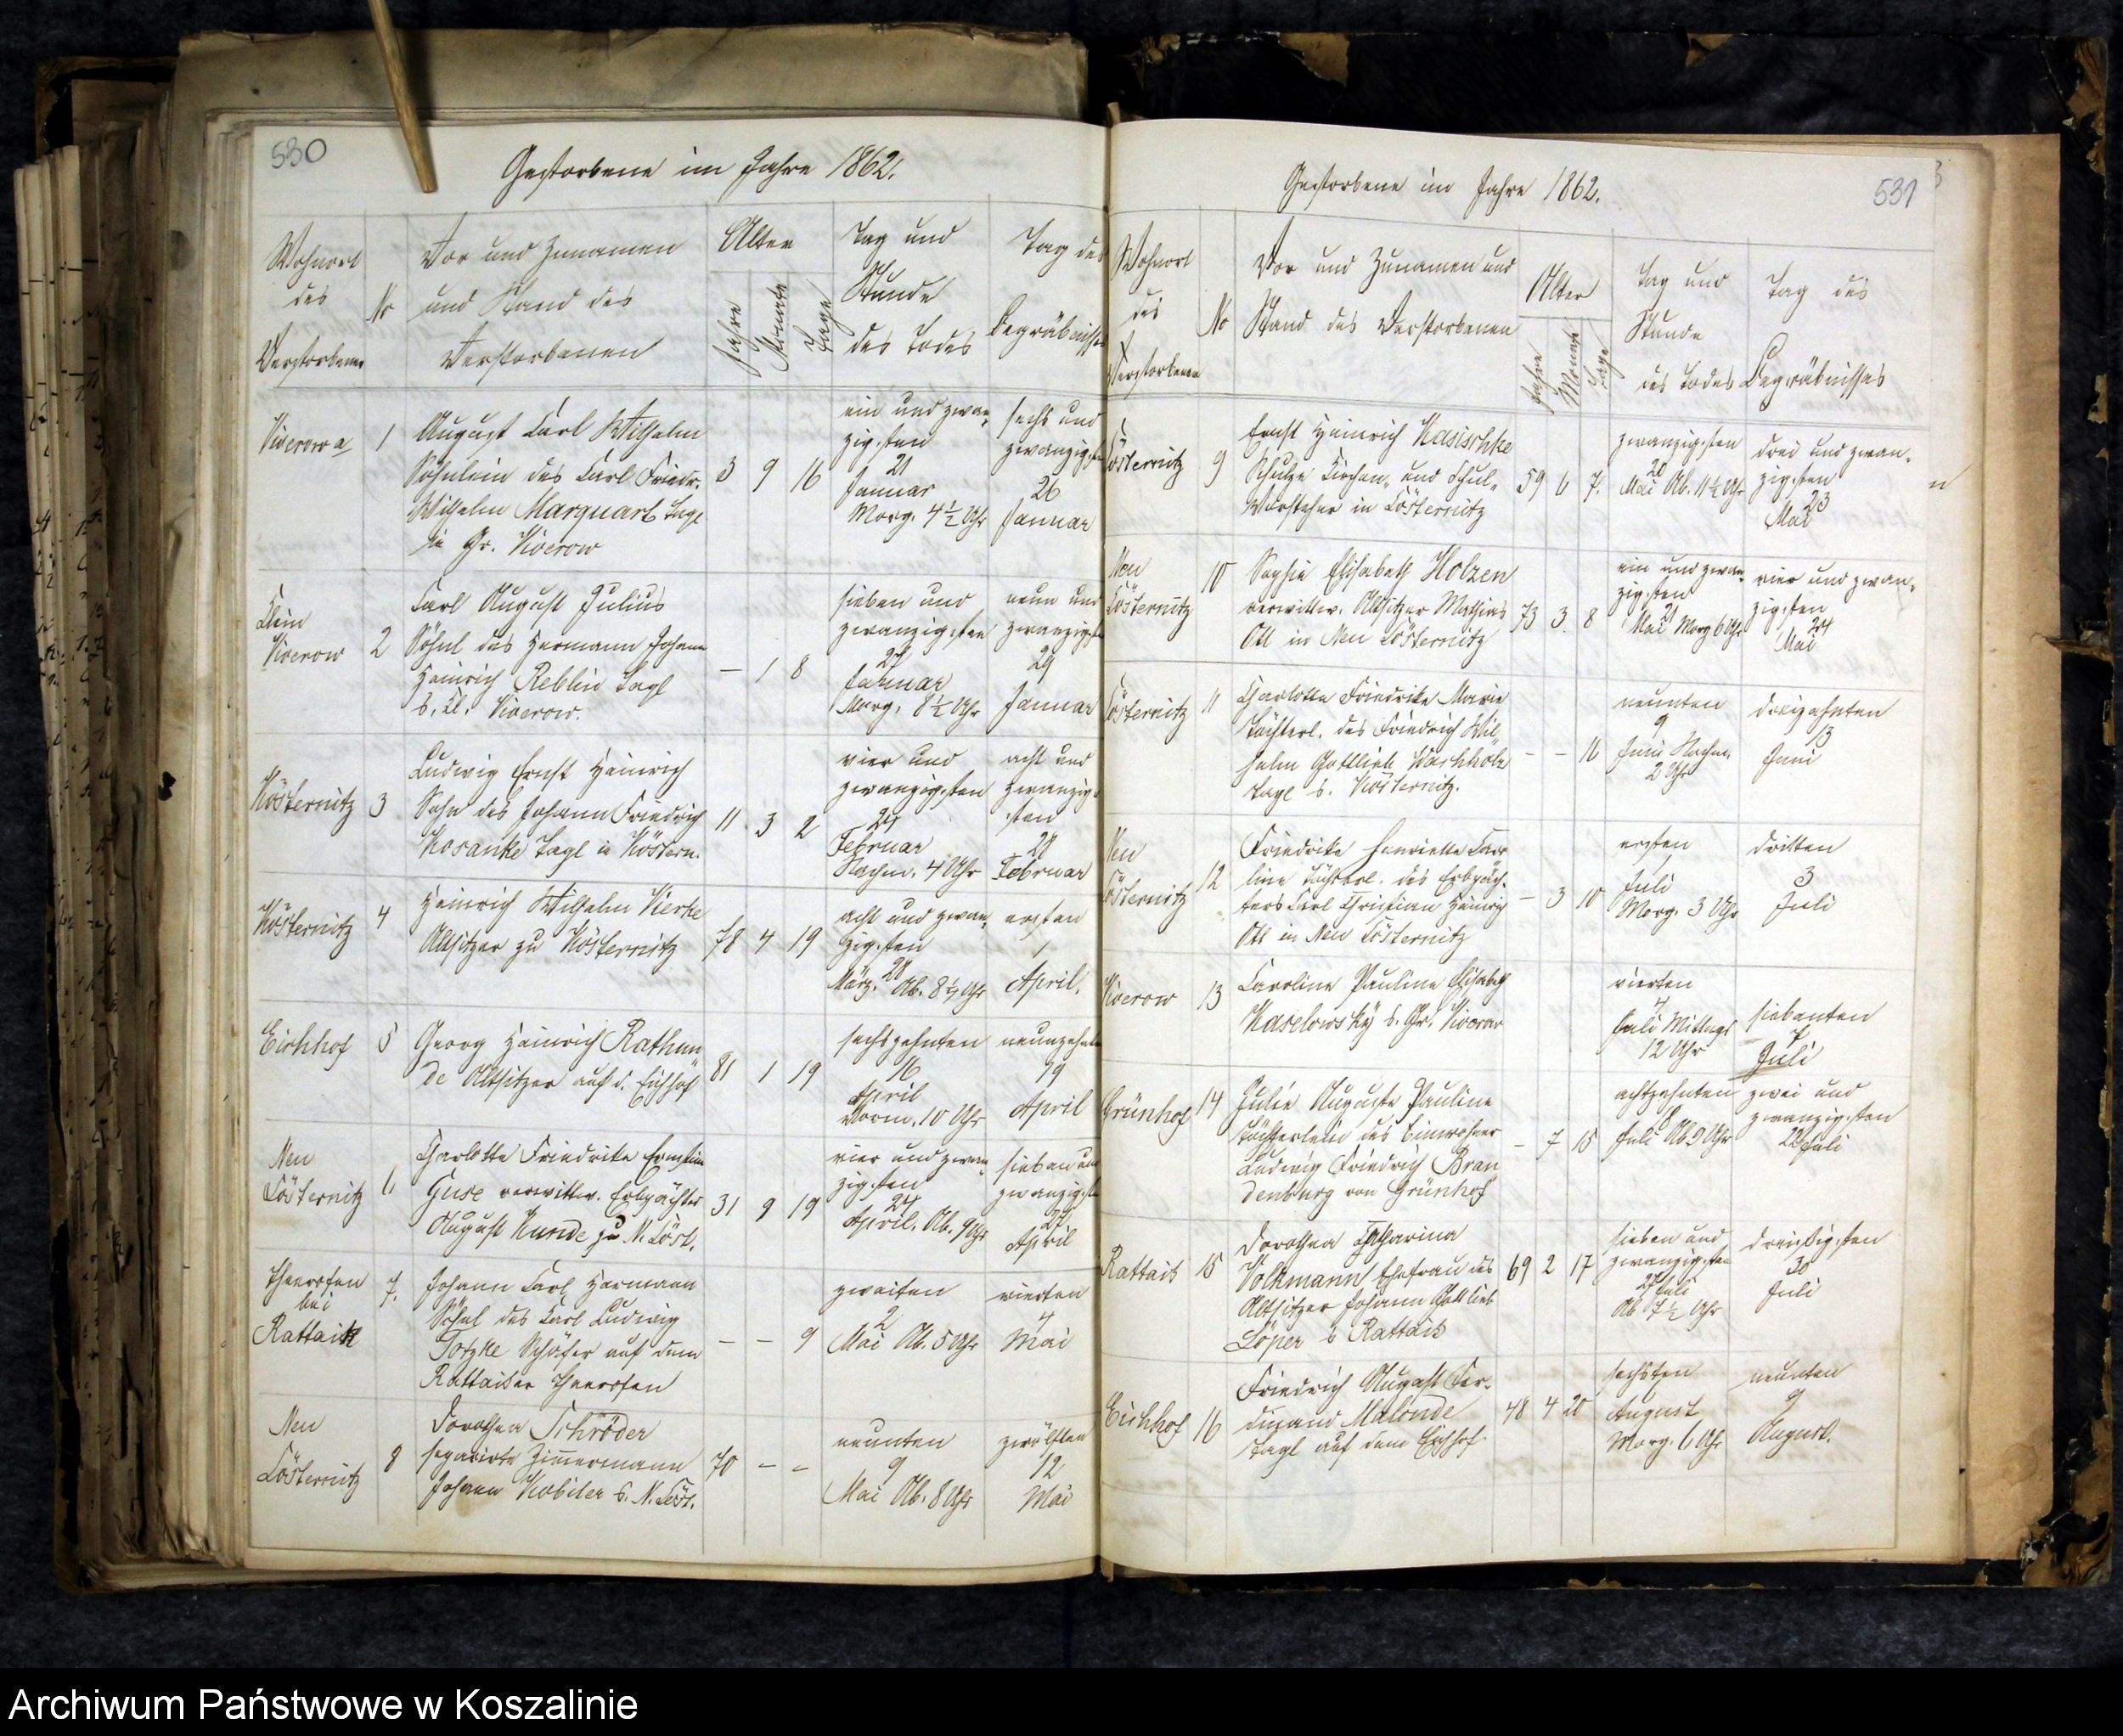 530
Gestorbene im Jahre 1862.
Wohnort
des
Verstorbenen
No
Vor und Zunamen
und Stand des
Verstorbenen
Alter
Jahre
Monate
Tage
Tag und
Stunde
des Todes
Tag des
Begräbnisses
1
August Carl Wilhelm
Söhnlein des Carl Friedr.
Wilhelm Marquart Tagl
in Gr. Kverow
3 9 16
ein und zwan-
zigsten
21
Januar
Morg. 4½ Uhr
sechs und
zwanzigsten
26
Januar
Klein
Kverow
2
Carl August Julius
Söhnl des Hermann Johann
Heinrich Reblin Tagl
Kverow.
— 1 8
sieben und
zwanzigsten
27
Januar
Morg. 8½ Uhr
neun und
zwanzigsten
29
Januar
Kösternitz
3
Ludwig Ernst Heinrich
Sohn des Johann Friedrich
Kosanke Tagl in Köstern.
11 3 2
vier und
zwanzigsten
24
Februar
Nachm. 4 Uhr
acht und
zwanzig-
sten
28
Februar
Kösternitz
4
Heinrich Wilhelm Vierke
Altsitzer zu Kösternitz
78 4 19
acht und zwan-
zigsten
28
März. Ab. 8½ Uhr
ersten
1
April.
Eichhof
5
Georg Heinrich Rathun
de Altsitzer auf d. Eichhof
81 1 19
sechszehnten
16
April
Vorm. 10 Uhr
neunzehnten
19
April
Neu
Cösternitz
6
Charlotte Friedrike Ernstine
Guse verwittw. Erbpächter
August Kunde zu N. Cöst.
31 9 19
vier und zwan-
zigsten
24
April. Ab. 9 Uhr
sieben und
zwanzigsten
27
April
Theerofen
bei
Rattaik
7.
Johann Carl Hermann
Söhnl des Carl Ludwig
Torzke Schäfer auf dem
Rattaiker Theerofen
— — 9
zweiten
2
Mai Ab. 5 Uhr
vierten
4
Mai
Neu
Cösternitz
8
Dorothea Schröder
separirte Zimmermann
Johann Kobiler N. Cöst.
70 — —
neunten
9
Mai Ab. 8 Uhr
zwölften
12
Mai
531
Gestorbene im Jahre 1862.
Wohnort
des
Verstorbenen
No
Vor und Zunamen und
Stand des Verstorbenen
Alter
Jahre
Monate
Tage
Tag und
Stunde
des Todes
Tag des
Begräbnisses
Cösternitz
9
Ernst Heinrich Kasischke
Schulze Kirchen- und Schul-
Vorsteher in Cösternitz
59 6 7.
zwanzigsten
20
Mai Ab. 11½ Uhr
drei und zwan-
zigsten
23
Mai
Neu
Cösternitz
10
Sophie Elisabeth Holzen
verwittw. Altsitzer Mathias
Ott in Neu Cösternitz
73 3 8
ein und zwan-
zigsten
21
Mai Morg 6 Uhr
vier und zwan-
zigsten
24
Mai
Cösternitz
11
Charlotte Friedrike Marie
Töchterl. des Friedrich Wil-
helm Gottlieb Warkholz
Tagl Kösternitz.
— — 16
neunten
9
Juni Nachm.
2 Uhr
dreizehnten
13
Juni
Neu
Cösternitz
12
Friedrike Henriette Caro
line Töchterl. des Erbpäch-
ters Carl Christian Heinrich
Ott in Neu Cösternitz
— 3 10
ersten
Juli
Morg. 3 Uhr
dritten
3
Juli
Kverow
13
Caroline Pauline Elisabeth
Kaselowsky Gr. Kverow
vierten
4
Juli Mittags
12 Uhr
siebenten
7
Juli
Grünhof
14
Julie Auguste Pauline
Töchterlein des Einwohner
Ludwig Friedrich Bran
denburg von Grünhof
— 7 15
achtzehnten
18
Juli Ab 9 Uhr
zwei und
zwanzigsten
22 Juli
Rattaik
15
Dorothea Catharina
Volkmann Ehefrau des
Altsitzer Johann Gottlieb
Löper Rattaik
69 2 17
sieben und
zwanzigsten
27 Juli
Ab 7½ Uhr
dreißigsten
30
Juli
Eichhof
16
Friedrich August Fer-
dinand Malonde
Tagl auf dem Eichhof.
48 4 20
sechsten
August
Morg. 6 Uhr
neunten
9
August.
Archiwum Państwowe w Koszalinie